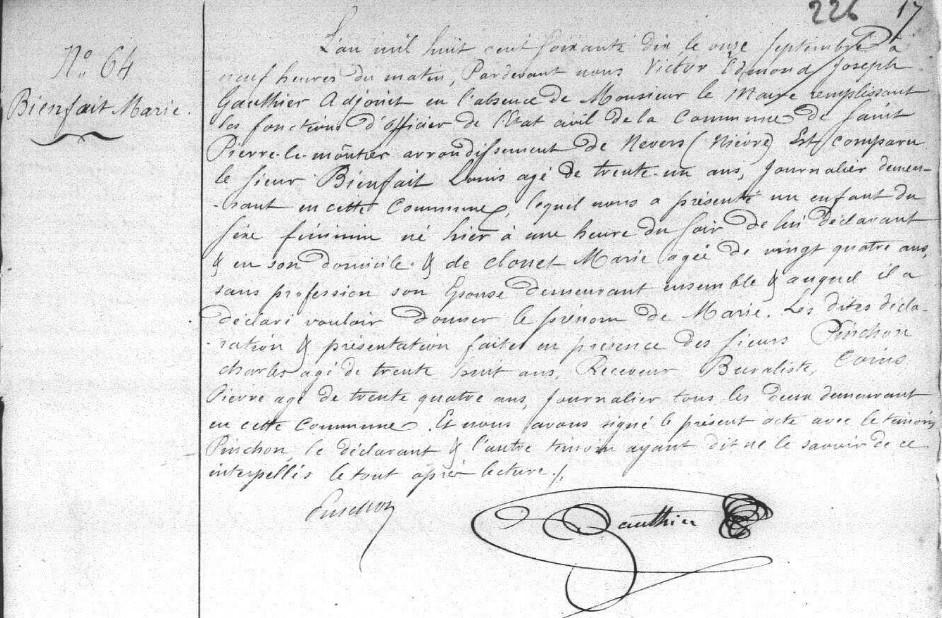 226 17
N° 64
Bienfait Marie.
L'an mil huit cent soixante dix le onze septembre à
neuf heures du matin, Pardevant nous Victor Edmond Joseph
Gauthier Adjoint en l'absence de Monsieur le Maire remplissant
les fonctions d'officier de l'Etat civil de la Commune de Saint
Pierre-le-môutier arrondissement de Nevers (Nièvre) Est comparu
le sieur Bienfait Louis agé de trente-un ans, Journalier demeu-
-rant en cette Commune, lequel nous a présenté un enfant du
sexe féminin né hier à une heure du soir de lui Déclarant
& en son domicile & de Clouet Marie agée de vingt quatre ans,
sans profession son Epouse demeurant ensemble & auquel il a
déclaré vouloir donner le prénom de Marie. Les dites décla-
-ration & présentation faites en présence des sieurs Pinchon
Charles agé de trente huit ans, Receveur Buraliste,
Pierre agé de trente quatre ans, Journalier tous les deux demeurant
en cette Commune. Et nous avons signé le présent acte avec le témoin
Pinchon le déclarant & l'autre témoin ayant dit ne le savoir de ce
interpellés le tout après lecture./.
Pinchon
Gauthier